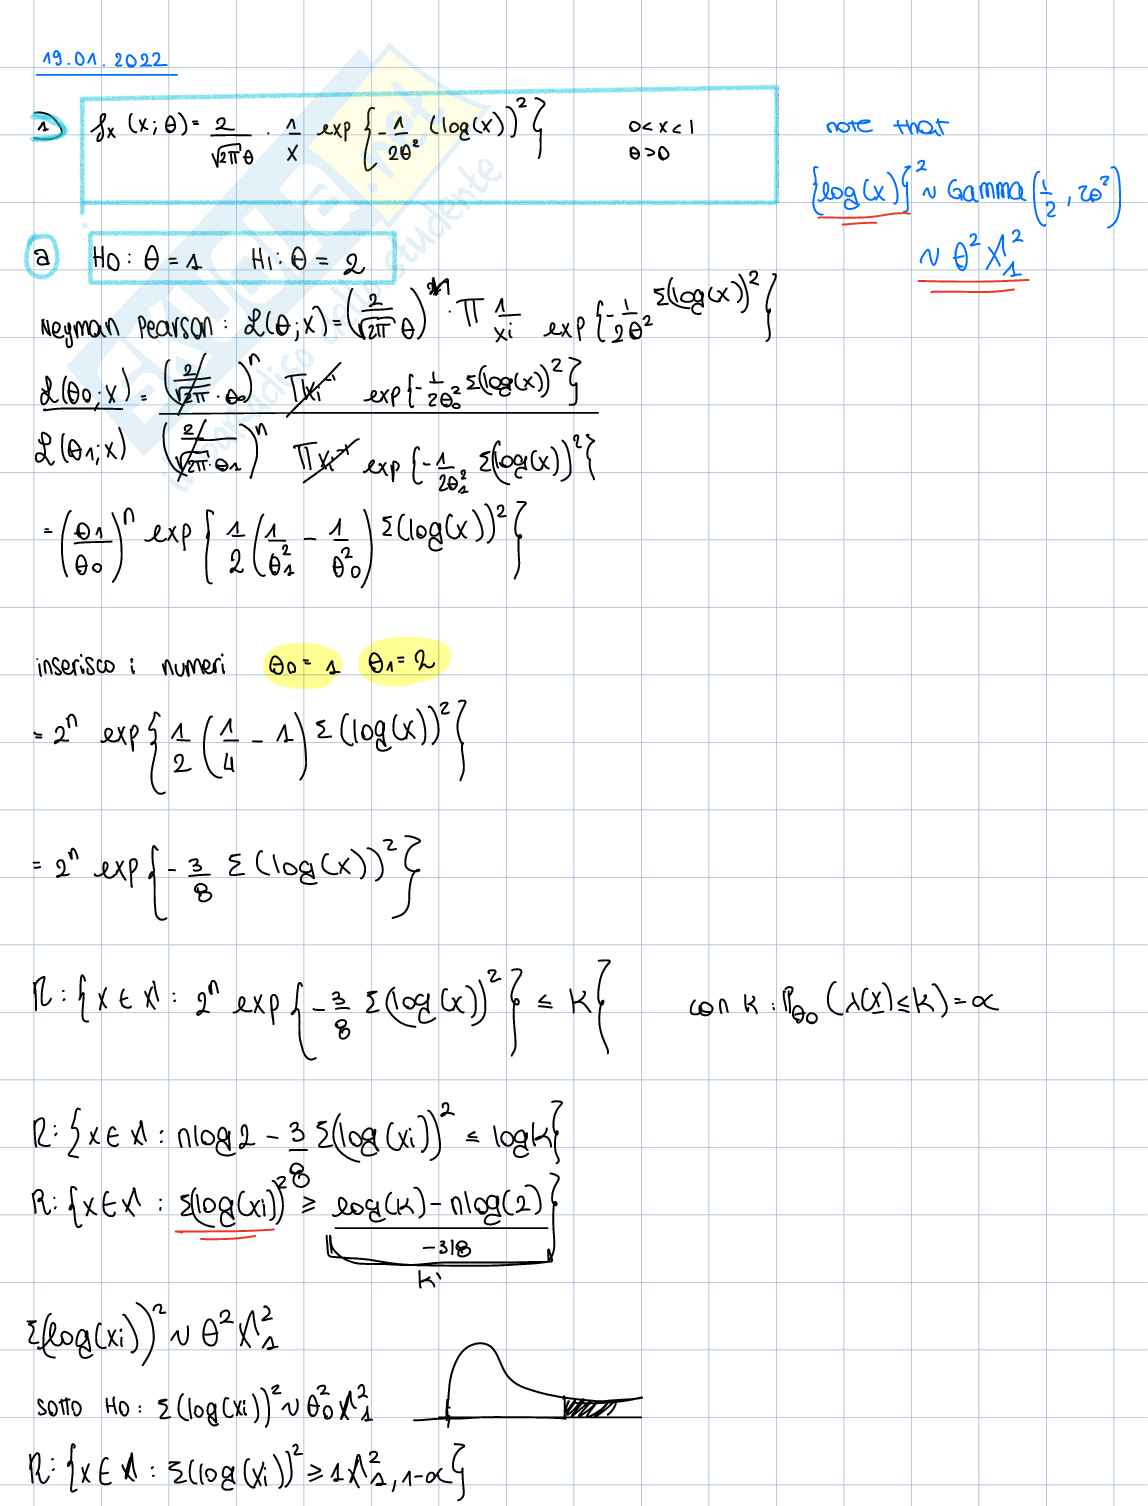 19.01.2022
1) fx (x; θ) = 2/(√2π θ) · 1/x exp{-1/(2θ²) (log(x))²} 0<x<1 θ>0
note that
{log(x)}² ~ Gamma(1/2, 2θ²)
~ θ² X²₁
a H0: θ = 1 H1: θ = 2
Neyman Pearson: L(θ; x) = (2/(√2π θ))ⁿ · π 1/xi exp{-1/(2θ²) Σ(log(x))²}
L(θ0; x) = (2/√2π · θ0)ⁿ πxi⁻¹ exp{-1/(2θ0²) Σ(log(x))²}
L(θ1; x) (2/√2π · θ1)ⁿ πxi⁻¹ exp{-1/(2θ1²) Σ(log(x))²}
= (θ1/θ0)ⁿ exp{1/2 (1/θ1² - 1/θ0²) Σ(log(x))²}
inserisco i numeri θ0 = 1 θ1 = 2
= 2ⁿ exp{1/2 (1/4 - 1) Σ(log(x))²}
= 2ⁿ exp{-3/8 Σ(log(x))²}
R: {x ∈ X : 2ⁿ exp{-3/8 Σ(log(x))²} ≤ K} con K : Pθ0 (λ(x) ≤ K) = α
R: {x ∈ X : nlog2 - 3/8 Σ(log(xi))² ≤ logK}
R: {x ∈ X : Σ(log(xi))² ≥ log(K) - nlog(2)}
-3/8
K'
Σ(log(xi))² ~ θ² X²₁
sotto H0: Σ(log(xi))² ~ θ0² X²₁
R: {x ∈ X : Σ(log(xi))² ≥ 1 X²₁,₁₋α}